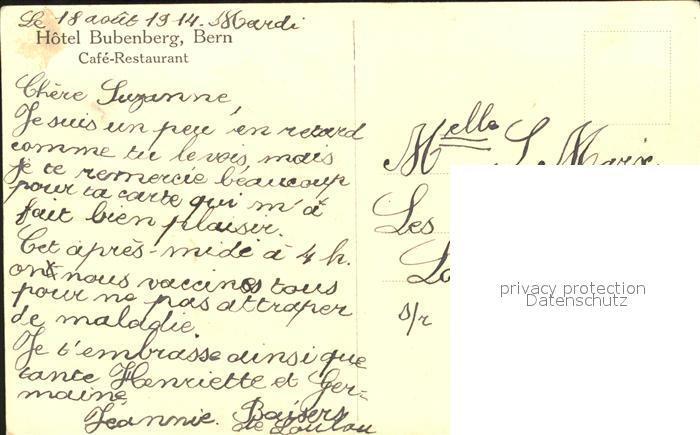 Le 18 août 1914. Mardi
Hôtel Bubenberg, Bern
Café-Restaurant
Chère Suzanne,
Je suis un peu en retard
comme tu le vois, mais
je te remercie beaucoup
pour ta carte qui m'a
fait bien plaisir.
Cet après-midi à 4 h.
on nous vaccine tous
pour ne pas attraper
de maladie.
Je t'embrasse ainsi que
tante Henriette et Ger=
maine
Jeannie. Baisers
de Loulou
Melle S. Marx
Les
s/r
privacy protection
Datenschutz